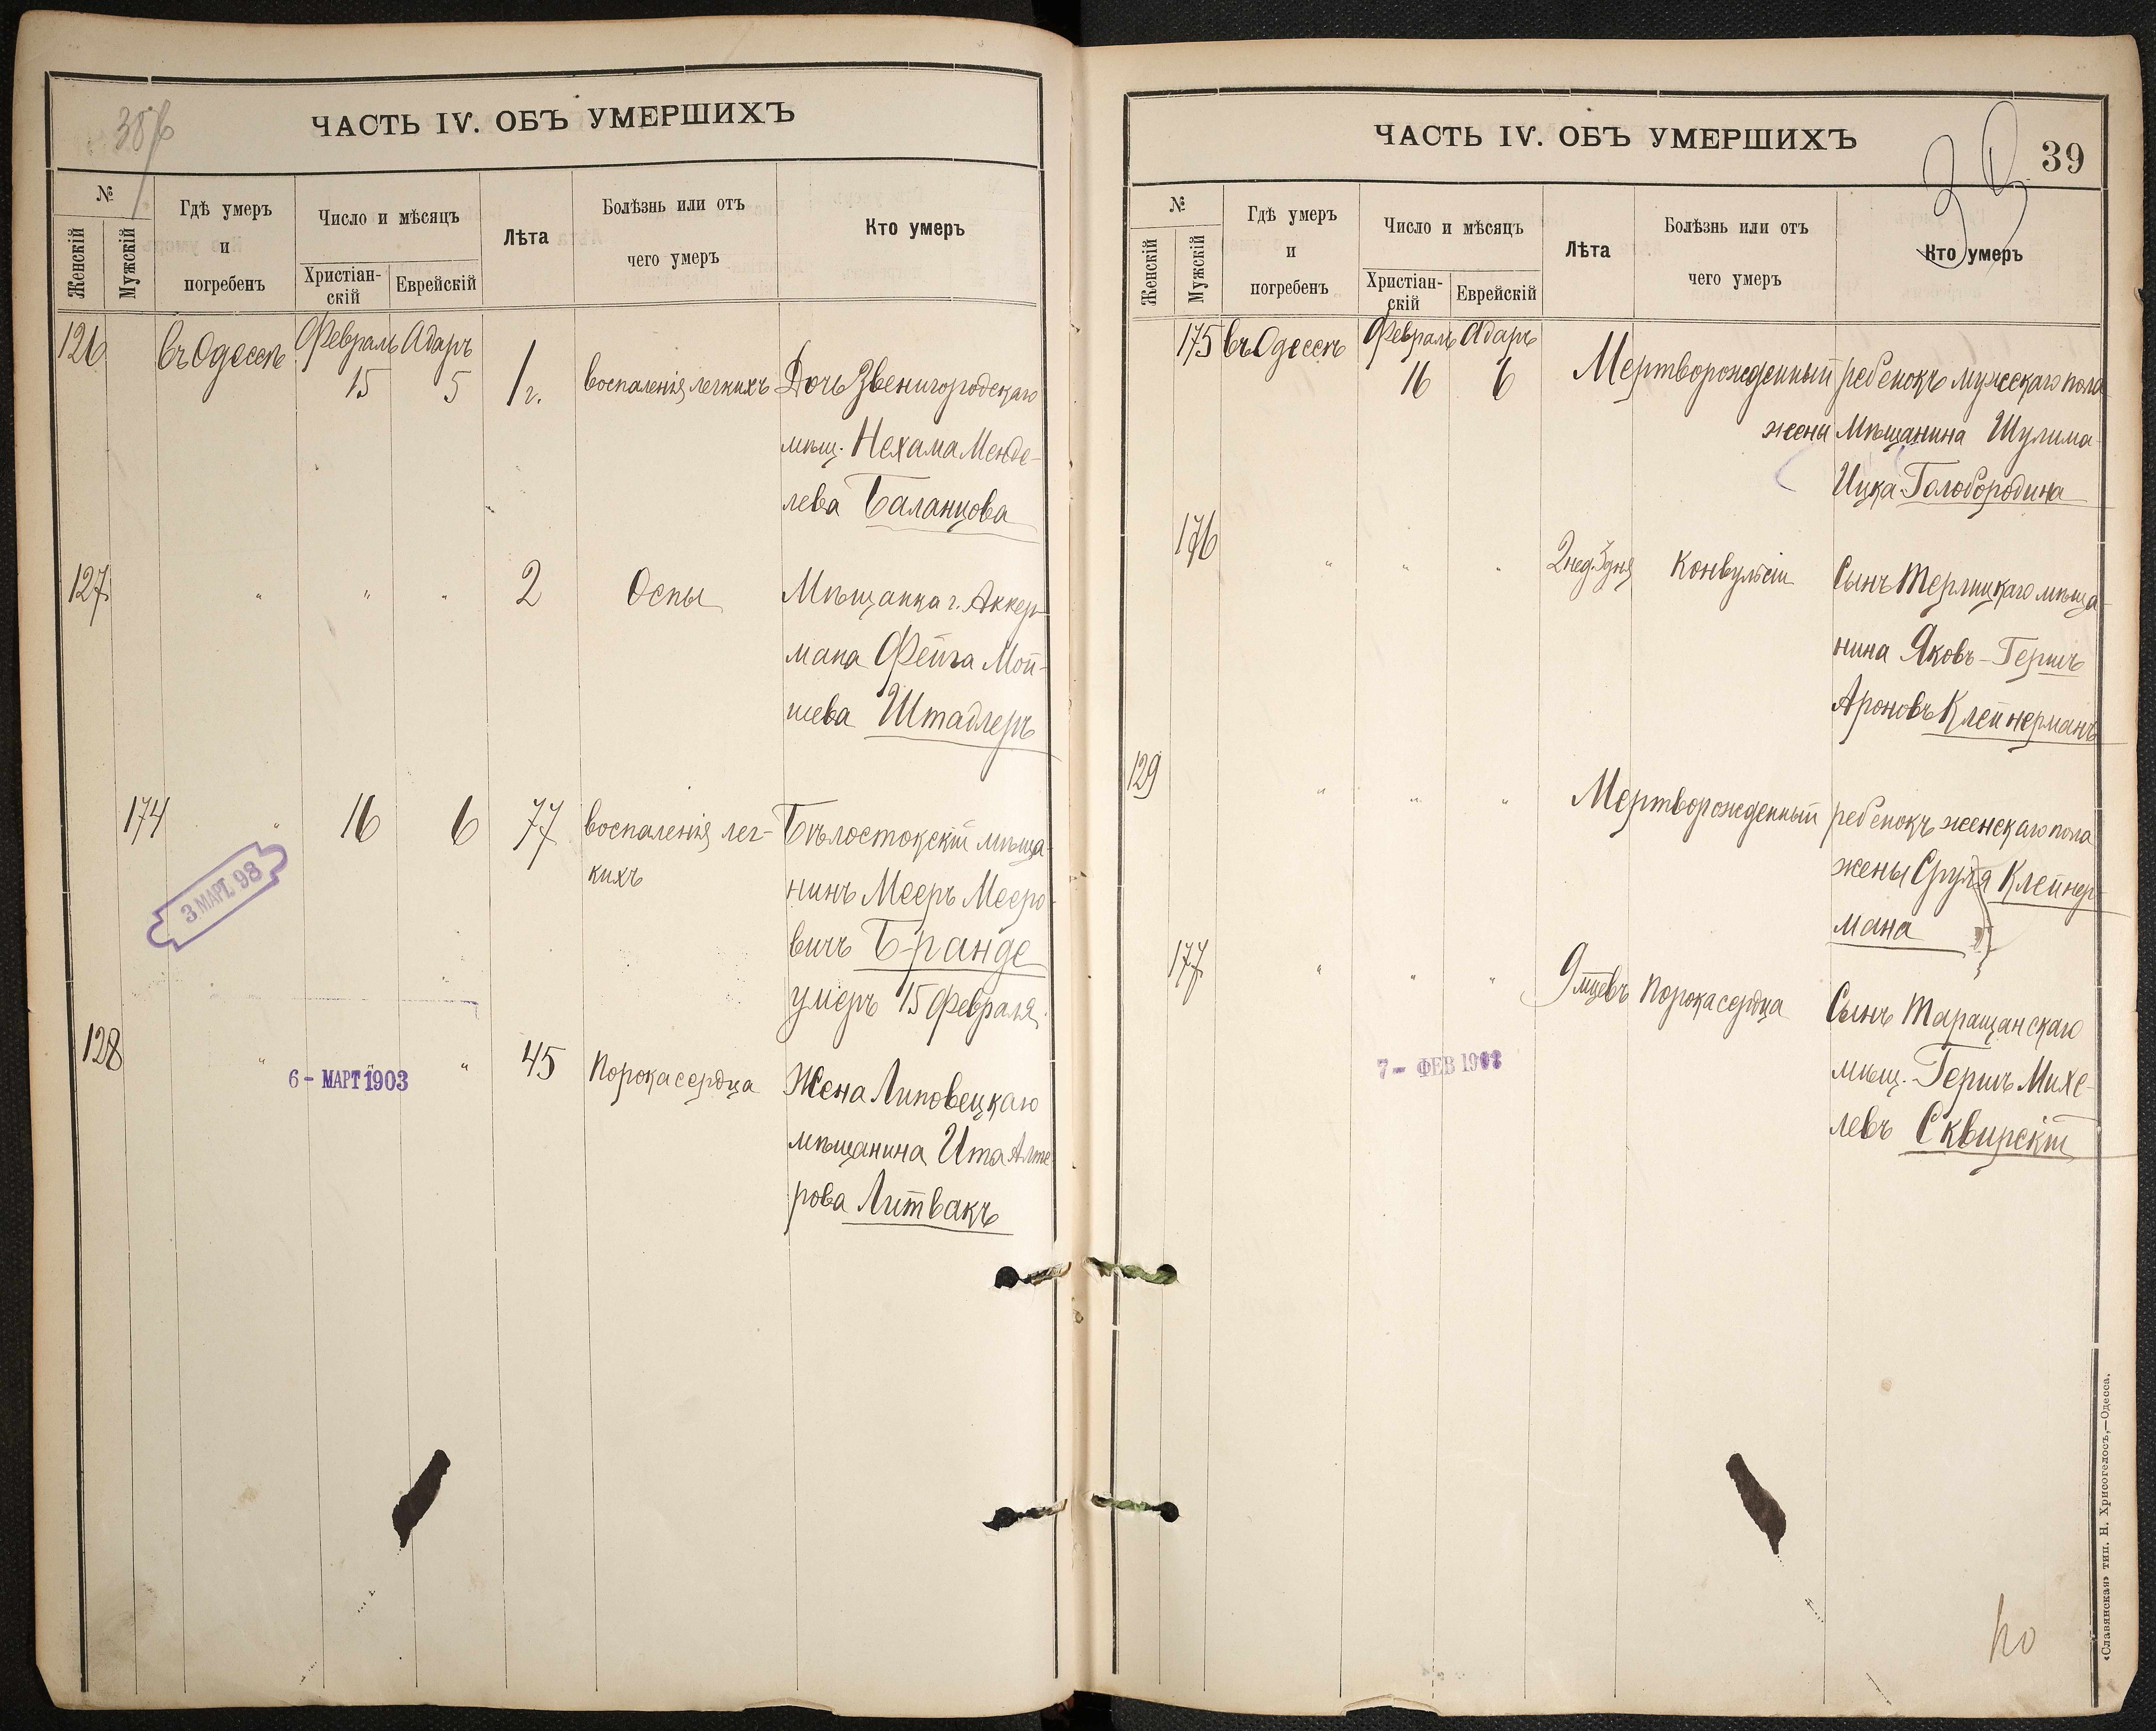 38 об
ЧАСТЬ IV. ОБЪ УМЕРШИХЪ
№
Женскій
Мужскій
Гдѣ умеръ
и
погребенъ
Число и мѣсяцъ
Христіан-
скій
Еврейскій
Лѣта
Болѣзнь или отъ
чего умеръ
Кто умеръ
126 въ Одессѣ Февраль Адаръ
15 5 1 г. воспаленія легкихъ Дочь Звенигородскаго
мѣщ. Нехама Менде-
лева Баланцова
127 " " " 2 Оспы Мѣщанка г. Аккер-
мана Фейга Мой-
шева Штадлеръ
174 " 16 6 77 воспаленія лег- Бѣлостокскій мѣща-
кихъ нинъ Мееръ Мееро-
вичъ Бранде
умеръ 15 Февраля.
3 МАРТ. 98
128 " " " 45 Порока сердца Жена Липовецкаго
6 - МАРТ 1903
мѣщанина Ита Алте-
рова Литвакъ
ЧАСТЬ IV. ОБЪ УМЕРШИХЪ
39
39
№
Женскій
Мужскій
Гдѣ умеръ
и
погребенъ
Число и мѣсяцъ
Христіан-
скій
Еврейскій
Лѣта
Болѣзнь или отъ
чего умеръ
Кто умеръ
175 въ Одессѣ Февраль Адаръ
16 6 Мертворожденный ребенокъ мужскаго пола
жены Мѣщанина Шулима-
Ицка Голобородина
176 " " " 2 нед. 3 дня Конвульсіи Сынъ Терлицкаго мѣща-
нина Яковъ-Гершъ
Ароновъ Клейнерманъ
129 " " " Мертворожденный ребенокъ женскаго пола
жены Сруля Клейнер-
мана
177 " " " 9 мцевъ Порока сердца Сынъ Таращанскаго
7 - ФЕВ 1903
мѣщ. Гершъ Михе-
левъ Сквирскій
«Славянская» тип. Н. Хрисогелосъ,—Одесса.